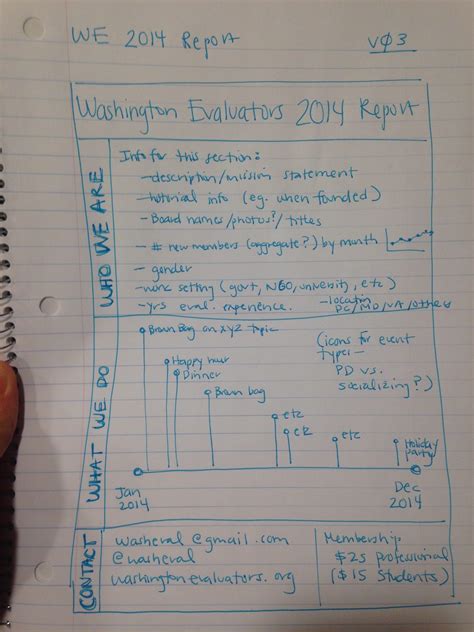 WE 2014 Report
vØ3
Washington Evaluators 2014 Report
WHO WE ARE
Info for this section:
- description/mission statement
- historical info (eg. when founded)
- Board names/photos?/titles
- # new members (aggregate?) by month
- gender
- work setting (govt, NGO, university, etc)
- yrs eval. experience.
- location
DC/MD/VA/other
WHAT WE DO
Brown Bag on XYZ topic
(icons for event
type -
PD vs.
socializing?)
Happy hour
Dinner
Brown bag
etc
etc
etc
Holiday
party
Jan
2014
Dec
2014
CONTACT
washeval@gmail.com
@washeval
washingtonevaluators.org
Membership:
$25 professional
($15 students)